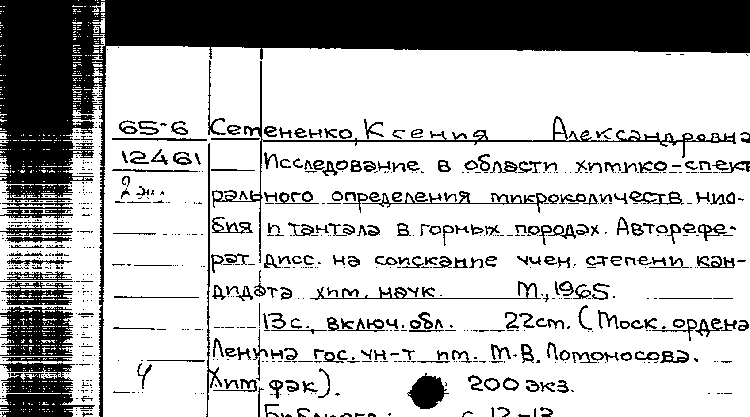 65-6 Семененко, Ксения Александровна
12461 Исследование в области химико-спект
2 экз. рального определения микроколичеств нио-
бия и тантала в горных породах. Авторефе-
рат дисс. на соискание учен. степени кан-
дидата хим. наук. М., 1965.
13 с., включ. обл. 22 см. (Моск. ордена
Ленина гос. ун-т им. М.В. Ломоносова.
Хим. фак). 200 экз.
с. 12-13